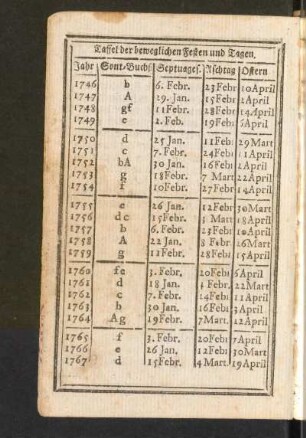 Taffel der beweglichen Festen und Tagen.
Jahr Sont-Buchst Septuages. Aschtag Ostern
1746 b 6. Febr. 23 Febr 10 April
1747 A 29. Jan. 15 Febr 2 April
1748 gf 11 Febr 28 Febr 14 April
1749 e 2. Feb. 19 Febr 6 April
1750 d 25 Jan. 11 Febr 29 Mart
1751 c 7. Febr. 24 Febr 11 April
1752 bA 30 Jan. 16 Febr 2 April
1753 g 18 Febr. 7 Mart 22 April
1754 f 10 Febr. 27 Febr 14 April
1755 e 26 Jan. 12 Febr 30 Mart
1756 dc 15 Febr. 3 Mart 18 April
1757 b 6. Febr. 23 Febr 10 April
1758 A 22 Jan. 8 Febr 26 Mart
1759 g 11 Febr. 28 Febr 15 April
1760 fe 3. Febr. 20 Febr 6 April
1761 d 18 Jan. 4 Febr. 22 Mart
1762 c 7. Febr. 24 Febr 11 April
1763 b 30 Jan. 16 Febr 3 April
1764 Ag 19 Febr. 7 Mart. 22 April
1765 f 3. Febr. 20 Febr 7 April
1766 e 26 Jan. 12 Febr 30 Mart
1767 d 15 Febr. 4 Mart. 19 April